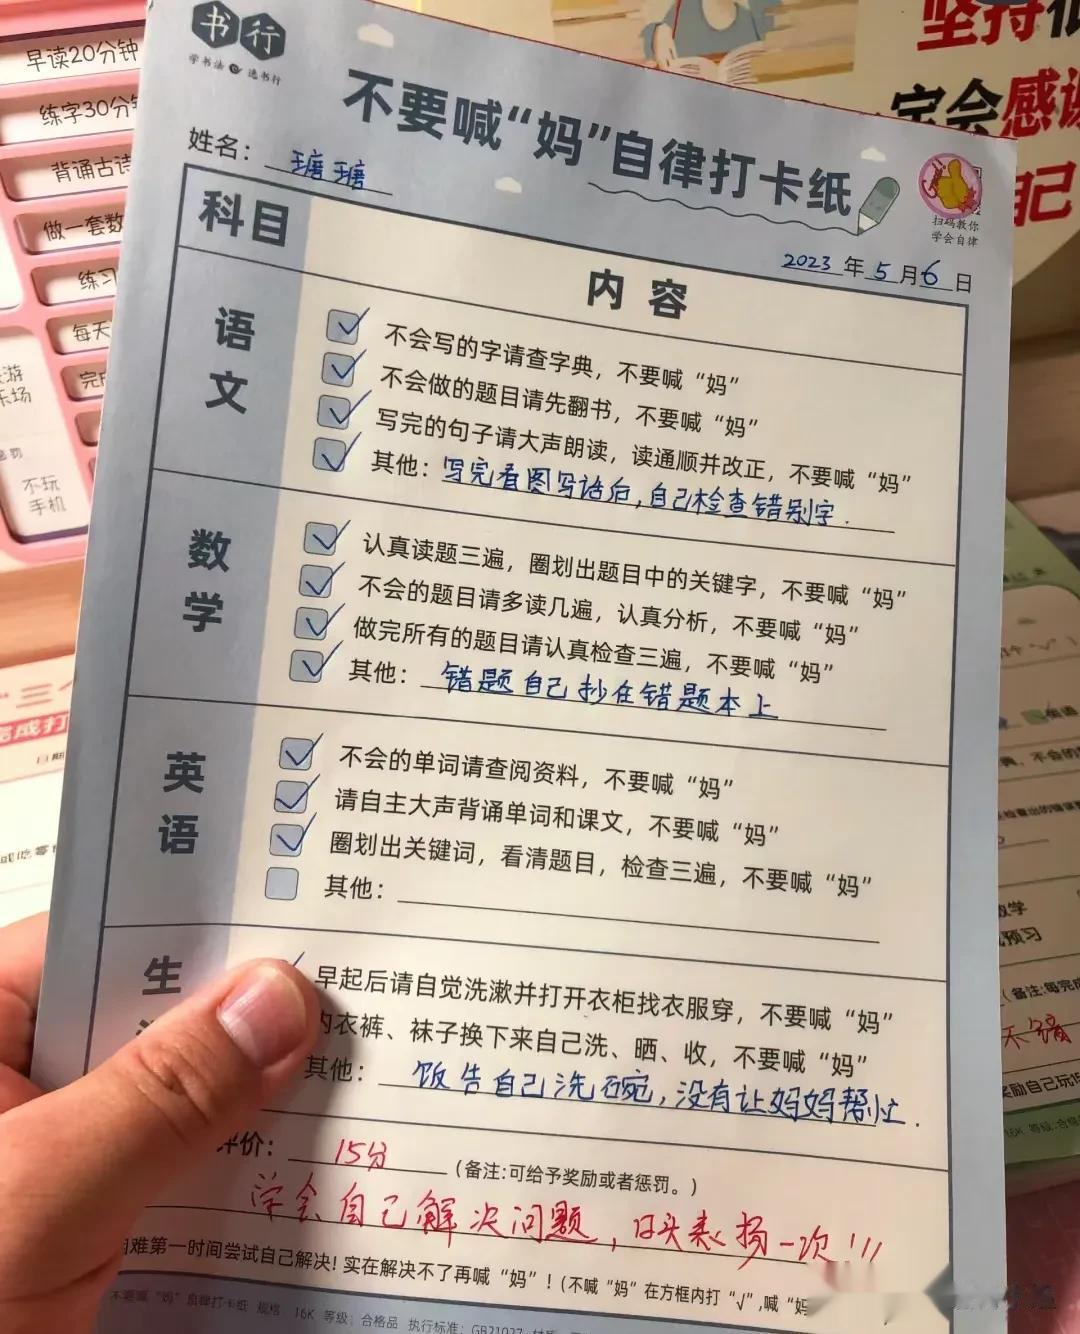 书行
学书法 选书行
不要喊“妈”自律打卡纸
姓名：瑭瑭
扫码教你
学会自律
2023年5月6日
科目
内容
语文
不会写的字请查字典，不要喊“妈”
不会做的题目请先翻书，不要喊“妈”
写完的句子请大声朗读，读通顺并改正，不要喊“妈”
其他：写完看图写话后，自己检查错别字.
数学
认真读题三遍，圈划出题目中的关键字，不要喊“妈”
不会的题目请多读几遍，认真分析，不要喊“妈”
做完所有的题目请认真检查三遍，不要喊“妈”
其他：错题自己抄在错题本上
英语
不会的单词请查阅资料，不要喊“妈”
请自主大声背诵单词和课文，不要喊“妈”
圈划出关键词，看清题目，检查三遍，不要喊“妈”
其他：
生
早起后请自觉洗漱并打开衣柜找衣服穿，不要喊“妈”
衣裤、袜子换下来自己洗、晒、收，不要喊“妈”
其他：饭告自己洗碗，没有让妈妈帮忙.
评价：15分（备注:可给予奖励或者惩罚。）
学会自己解决问题，口头表扬一次!!!
难第一时间尝试自己解决！实在解决不了再喊“妈”！(不喊“妈”在方框内打“√”,喊“妈
不要喊“妈”自律打卡纸 规格 16K 等级：合格品 执行标准：GB21027
早读20分钟
练字30分
背诵古诗
做一套数
练习
每天
完成
游
乐场
不玩
手机
“三个
完成打
坚持
一定会感谢
自己
数学
预习
(备注:每完成
不错
奖励自己玩
16K 等级:合格